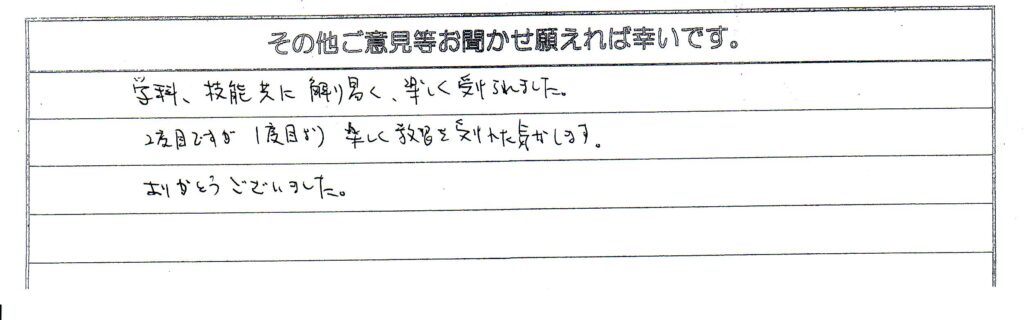 その他ご意見等お聞かせ願えれば幸いです。
学科、技能共に解り易く、楽しく受けられました。
2度目ですが1度目より楽しく教習を受けれた気がします。
ありがとうございました。